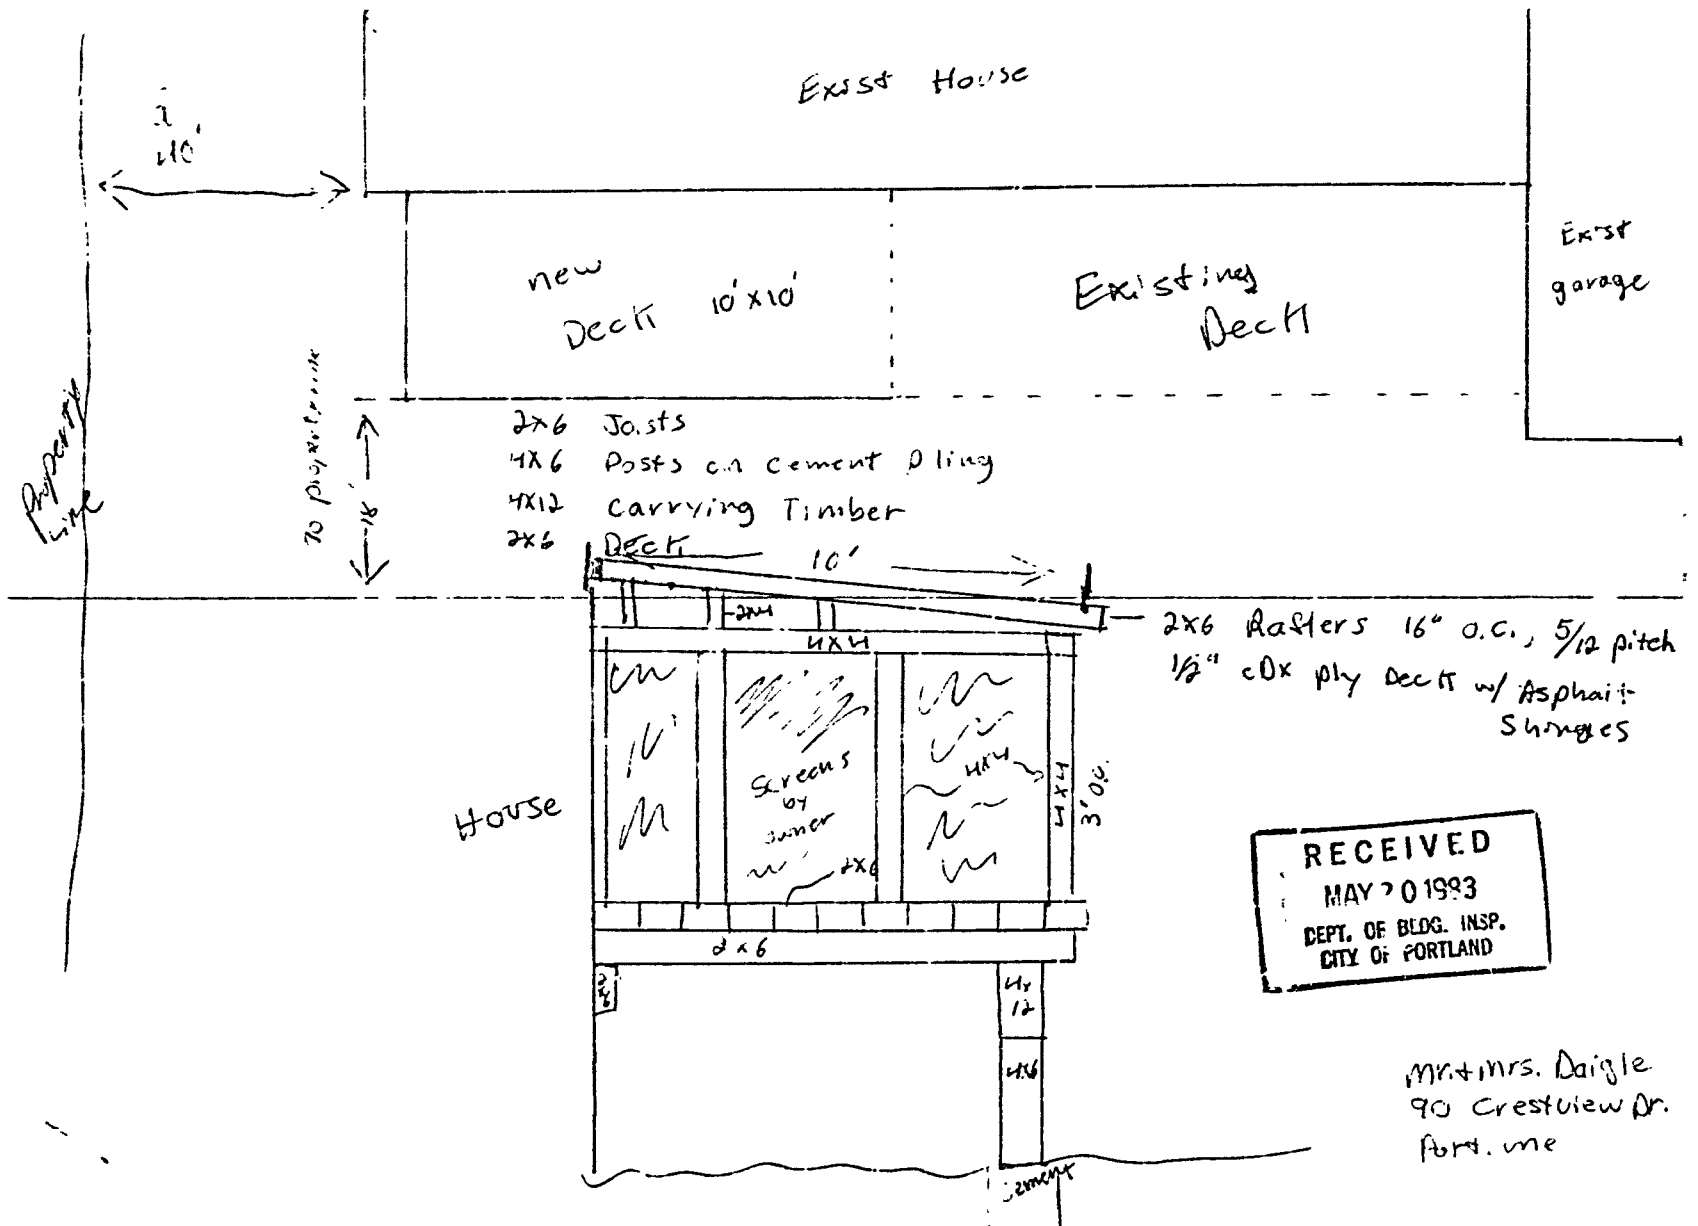 Exist House
10'
new
Deck 10'x10'
Existing
Deck
Exist
garage
Property
Line
To property line
18'
2x6 Joists
4x6 Posts on cement Piling
4x12 Carrying Timber
2x6 Deck
10'
2x4
4x4
2x6 Rafters 16" O.C., 5/12 pitch
1/2" CDX ply Deck w/ Asphalt
Shingles
House
Screens
by
owner
4x4
4x4
3' O.C.
2x6
2x6
2x6
4x
12
4x6
cement
RECEIVED
MAY 20 1993
DEPT. OF BLDG. INSP.
CITY OF PORTLAND
Mr. + Mrs. Daigle
90 Crestview Dr.
Port. me